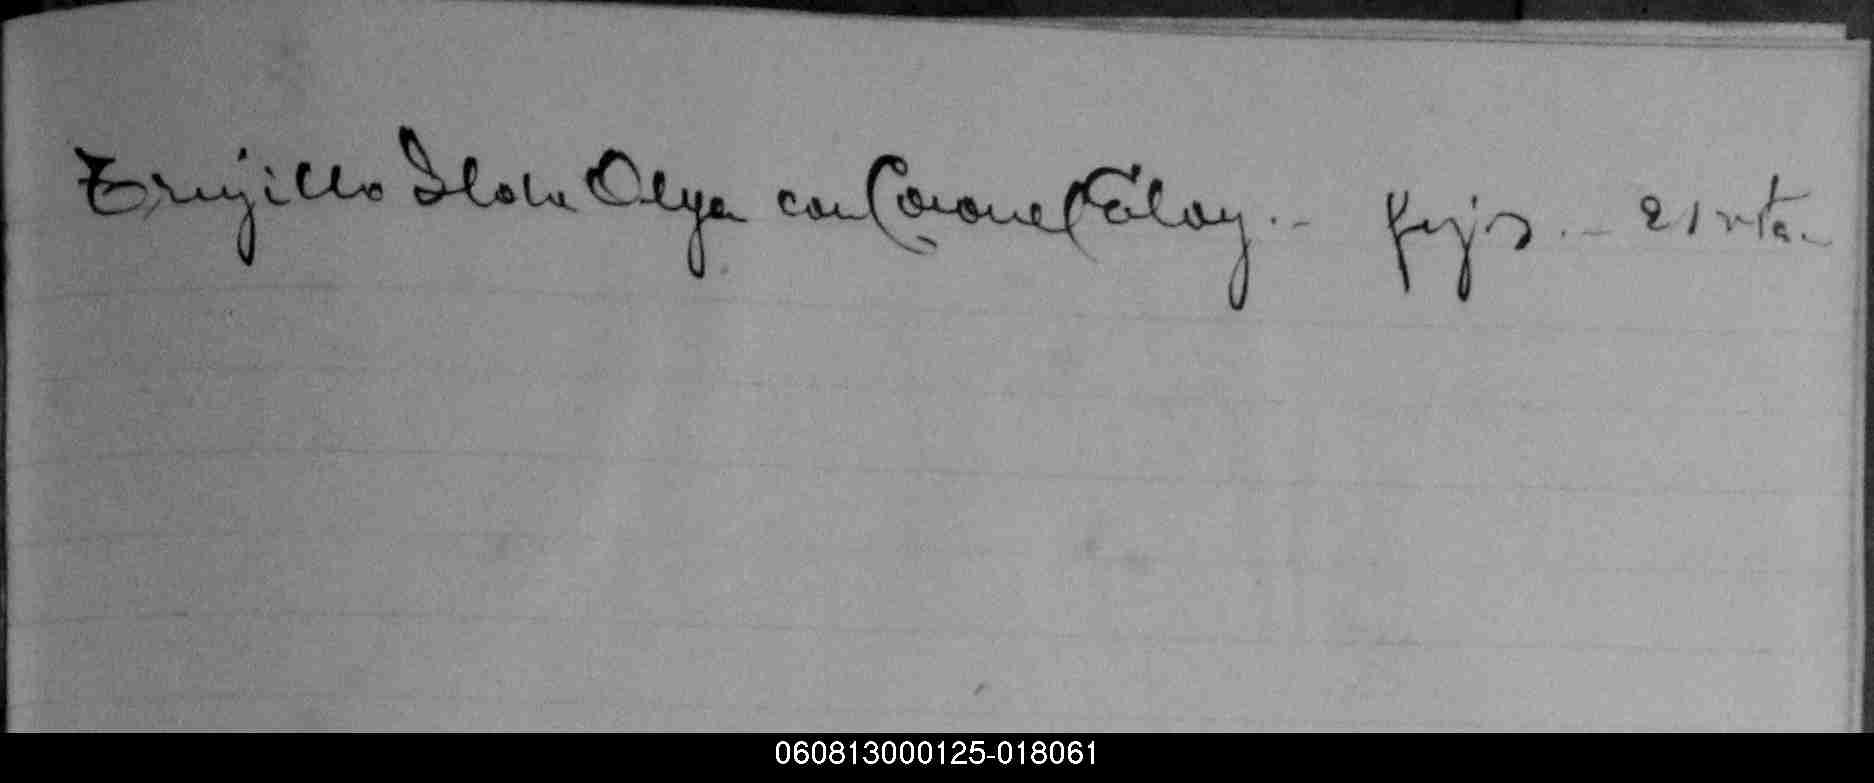 Trujillo Ilda Olga con Coronel Eloy.- 21 vta.-
060813000125-018061